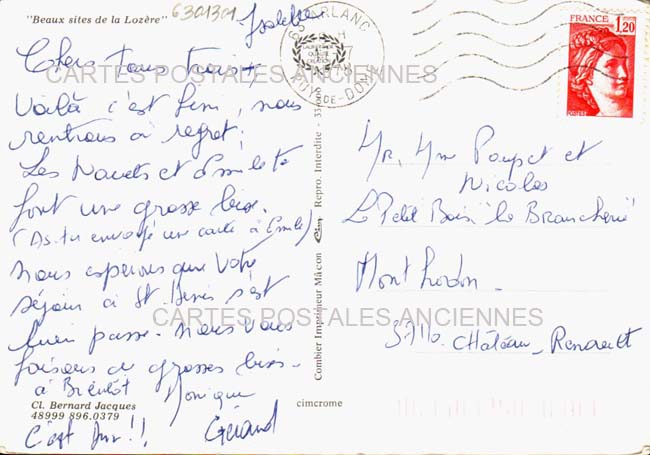 "Beaux sites de la Lozère"
6301301
63 ARLANC
PUY-DE-DOME
FRANCE
1,20
CARTES POSTALES ANCIENNES
Chers tous trois
Voilà c'est fini, nous
rentrons à regret.
Les et Émile te
font une grosse bise.
(As-tu envoyé une carte à Émile)
Nous espérons que votre
séjour à St. Denis s'est
bien passé. Nous vous
faisons de grosses bises.
à Bientôt Monique
C'est dur!! Gérard
Cl. Bernard Jacques
48999 896.0379
Combier Imprimeur Mâcon Cim Repro. Interdite
cimcrome
Mr, Mme Poupet et
Nicolas
Le Petit Bois "la Brancherie"
Monthodon.
37110 Château-Renault
CARTES POSTALES ANCIENNES